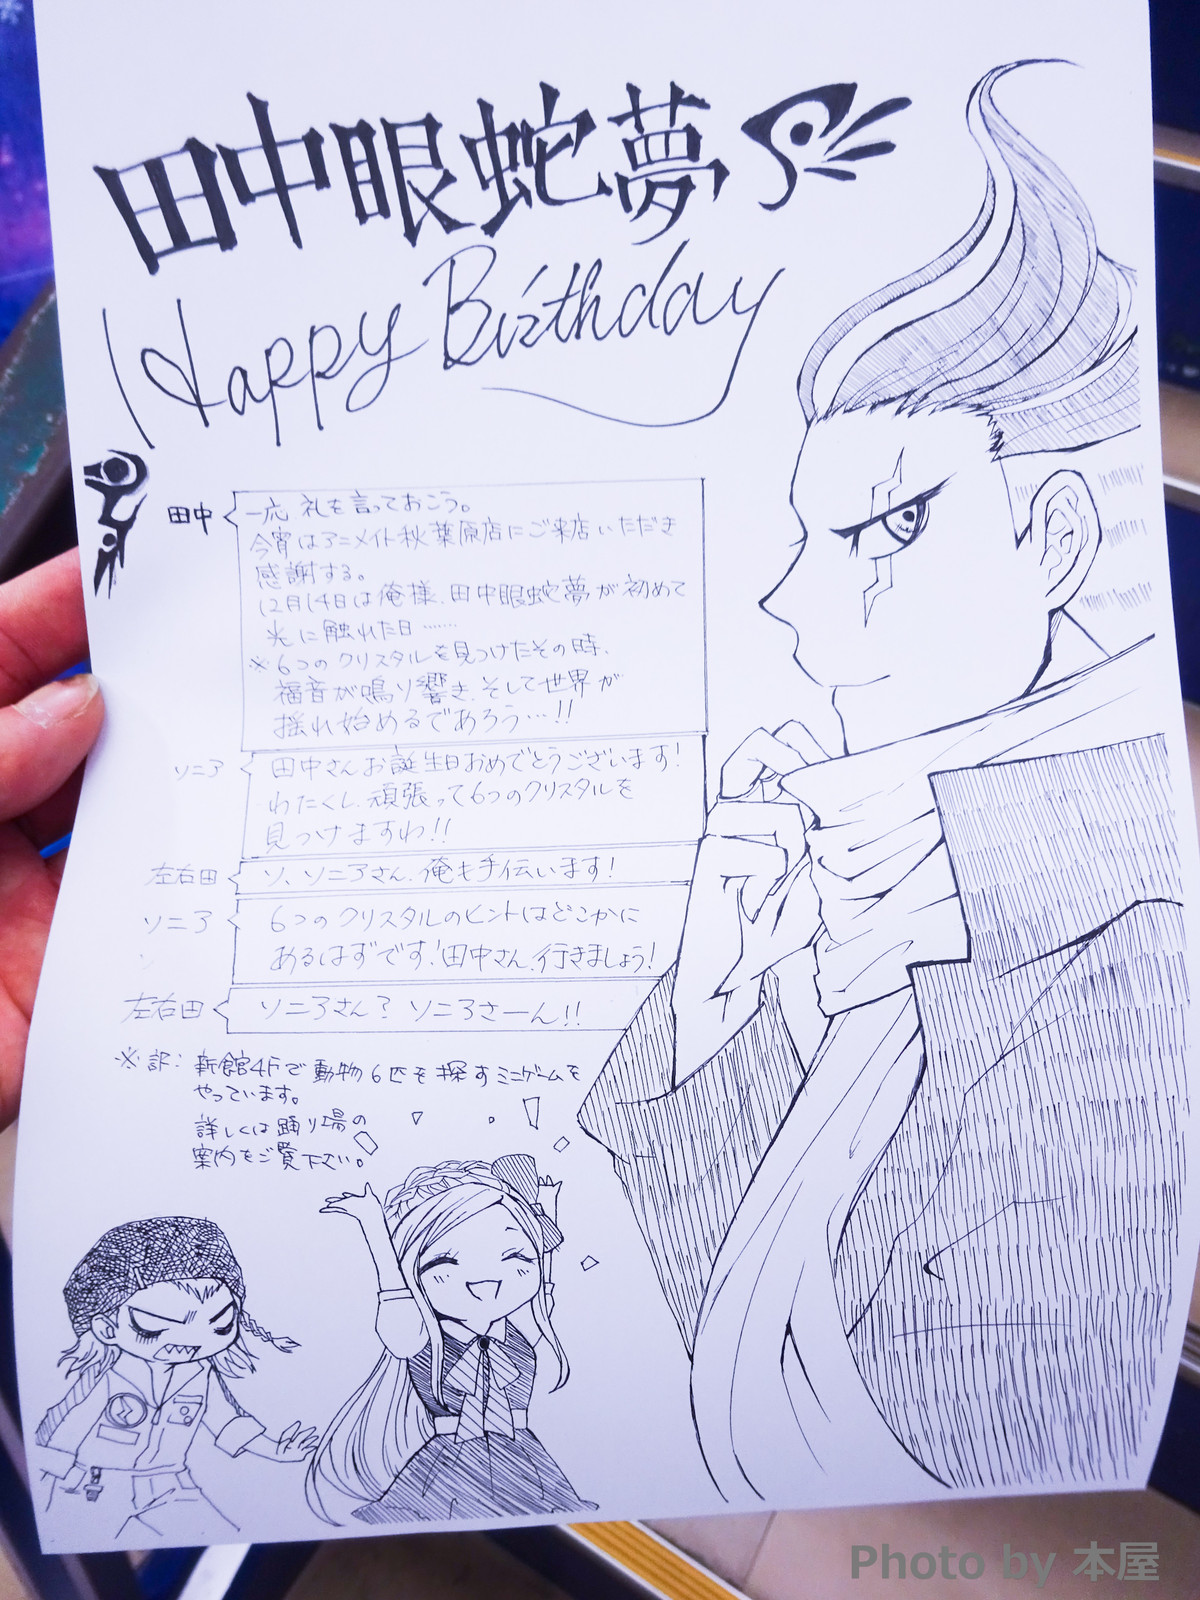 田中眼蛇夢
Happy Birthday
田中
一応、礼を言っておこう。
今宵はアニメイト秋葉原店にご来店いただき
感謝する。
12月14日は俺様、田中眼蛇夢が初めて
光に触れた日……
※6つのクリスタルを見つけたその時、
福音が鳴り響き、そして世界が
揺れ始めるであろう…!!
ソニア
田中さんお誕生日おめでとうございます!
わたくし、頑張って6つのクリスタルを
見つけますわ!!
左右田
ソ、ソニアさん、俺も手伝います!
ソニア
6つのクリスタルのヒントはどこかに
あるはずです!田中さん、行きましょう!
左右田
ソニアさん? ソニアさーん!!
※訳: 新館4Fで動物6匹を探すミニゲームを
やっています。
詳しくは踊り場の
案内をご覧下さい。
Photo by 本屋